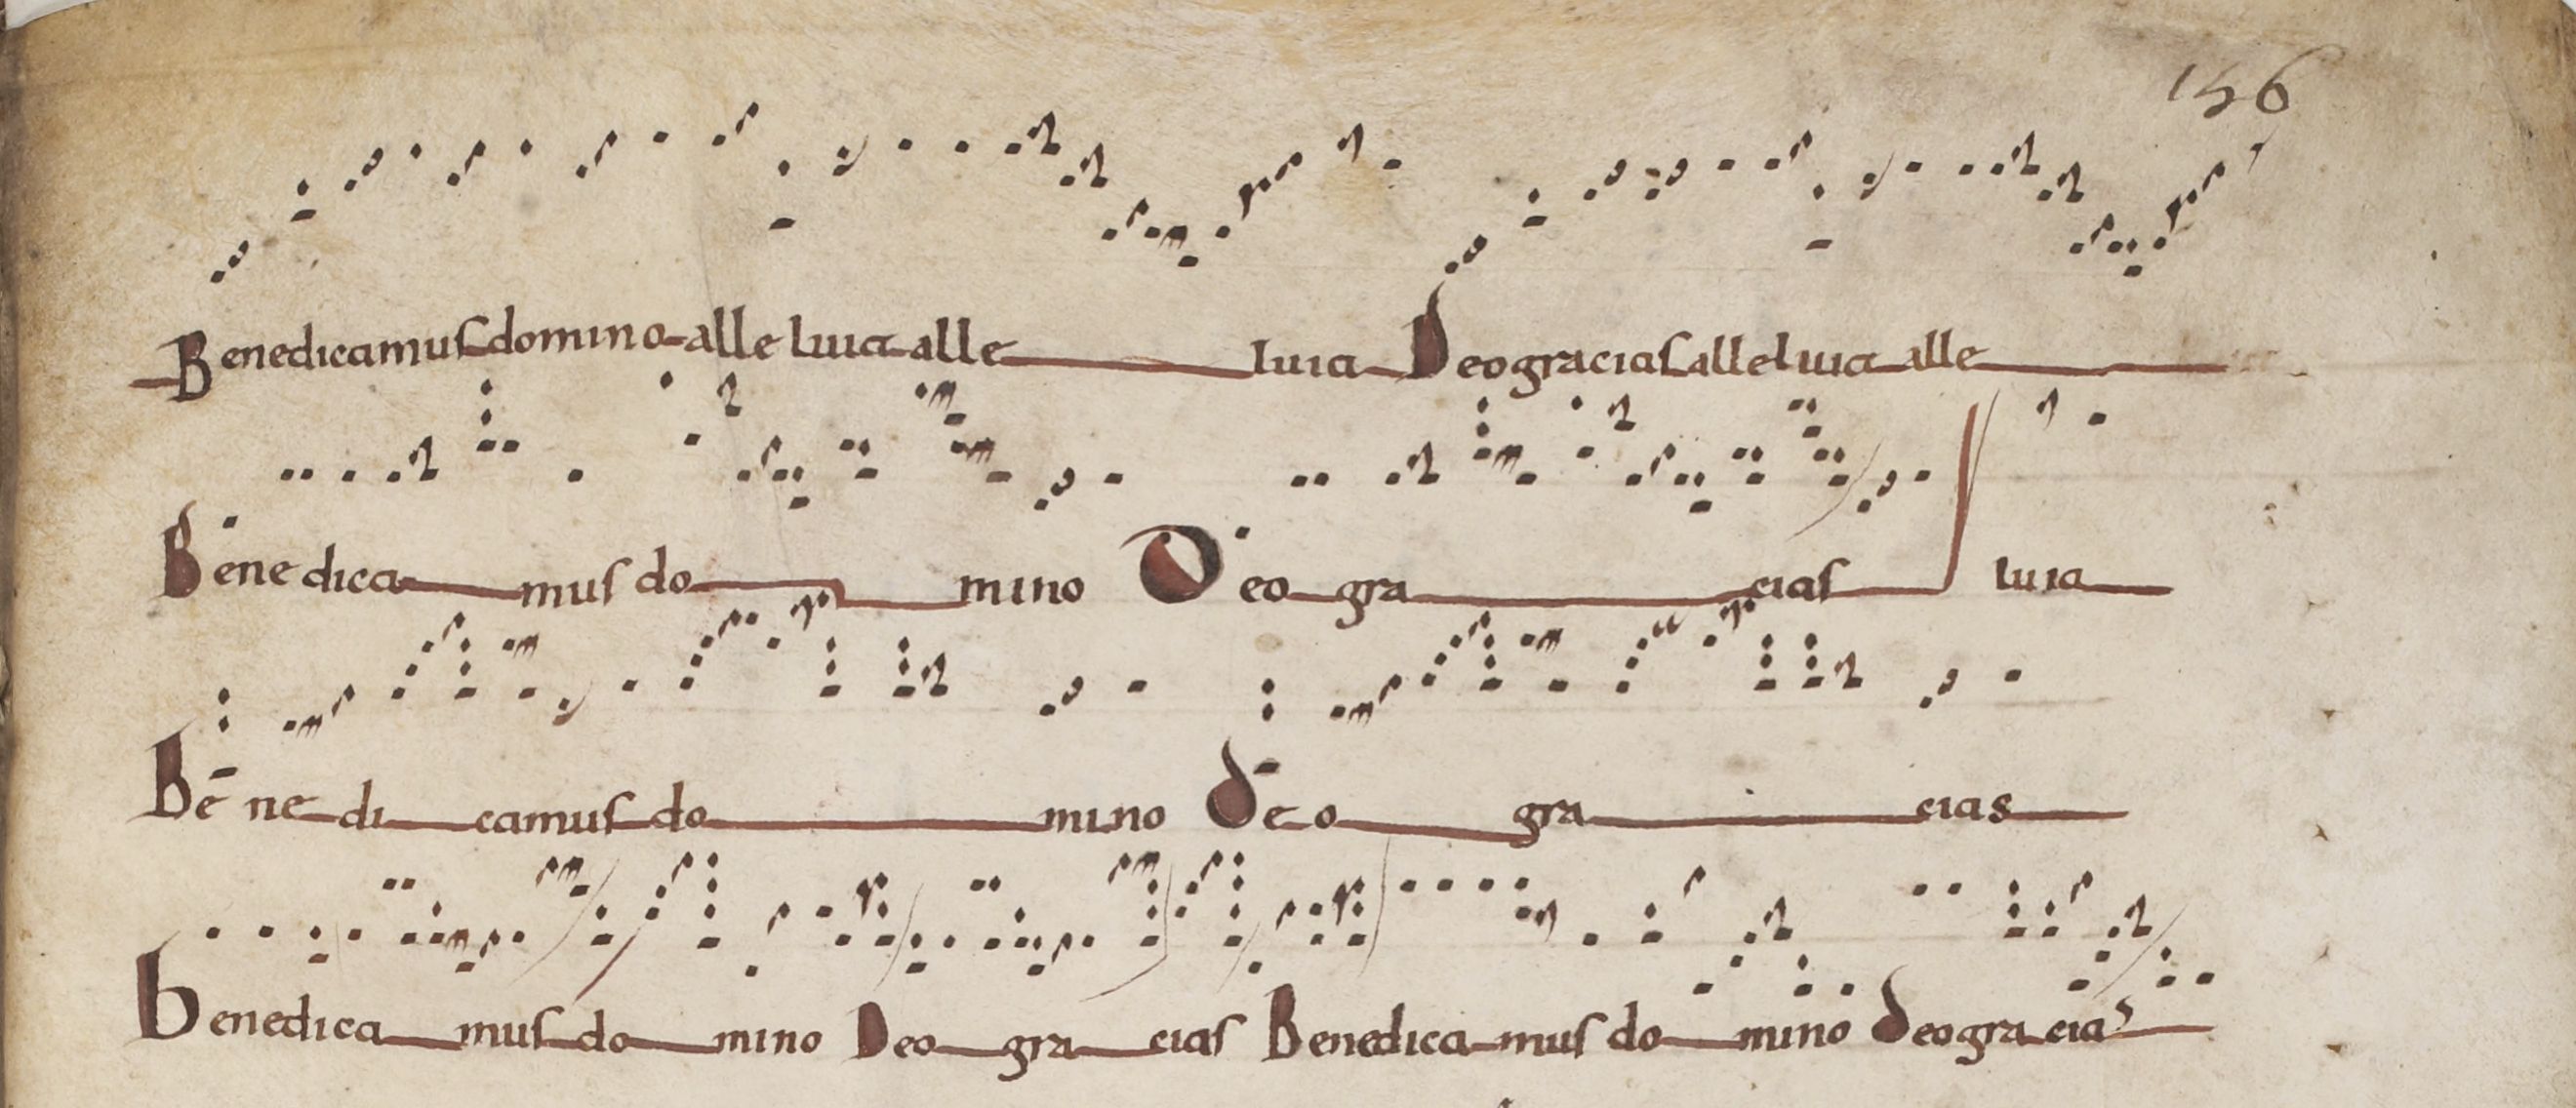 156
Benedicamus domino alleluia alleluia Deo gracias alleluia alle
Benedicamus domino Deo gracias luia
Benedicamus domino deo gracias
benedicamus domino Deo gracias Benedicamus domino deo gracias